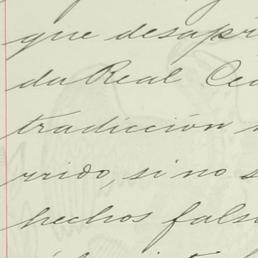 que desapr
da Real Ced
tradicción
rrido, si no s
hechos fals